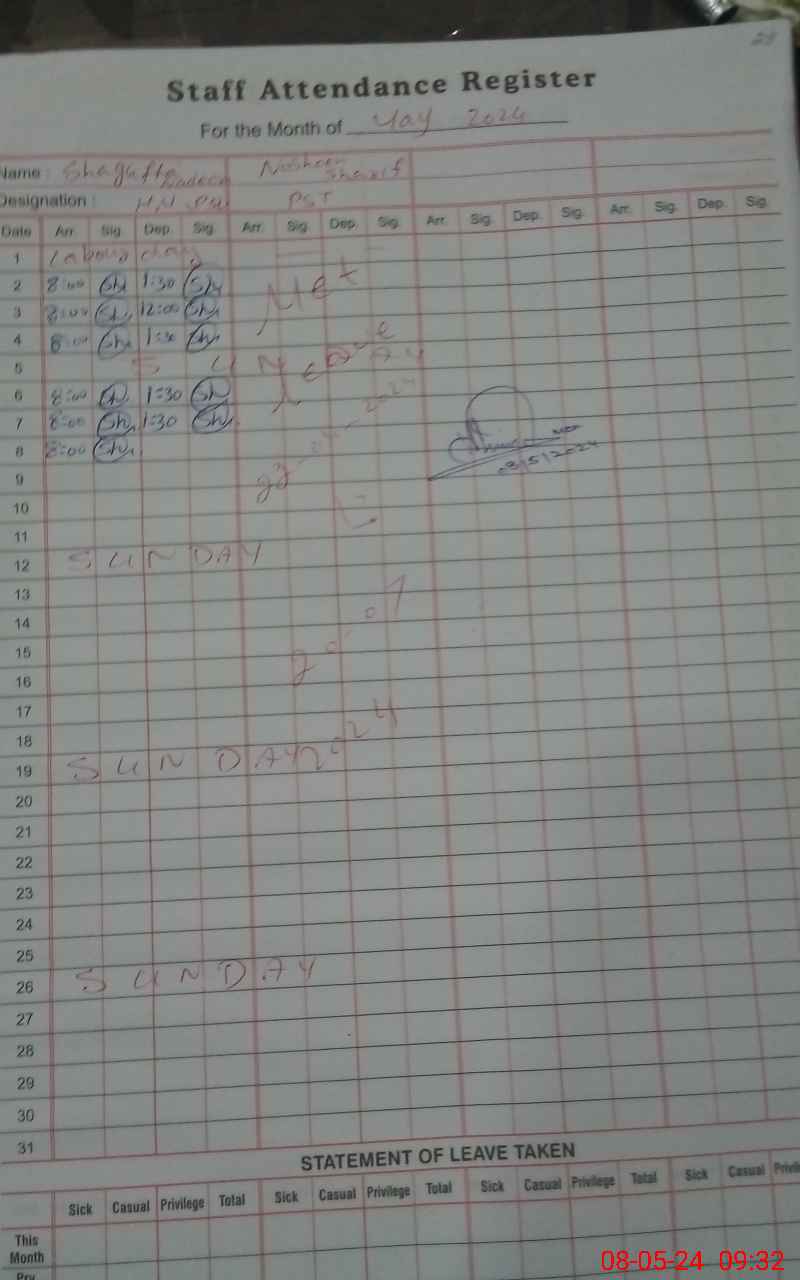 28
Staff Attendance Register
For the Month of May 2024
Name : Shagufta Nadeem Nosheen Sharif
Designation : PST
Date Arr. Sig. Dep. Sig. Arr. Sig. Dep. Sig. Arr. Sig. Dep. Sig. Arr. Sig. Dep. Sig.
1 Labour day
2 8:00 Sh 1:30 Sh
3 8:00 Sh 12:00 Sh
4 8:00 Sh 1:30 Sh
5 SUNDAY
6 8:00 Sh 1:30 Sh
7 8:00 Sh 1:30 Sh
8 8:00 Sh
Leave
08/5/2024
9
10
11
12 SUNDAY
13
14
15
16
17
18
19 SUNDAY
2024
20
21
22
23
24
25
26 SUNDAY
27
28
29
30
31
STATEMENT OF LEAVE TAKEN
Sick Casual Privilege Total Sick Casual Privilege Total Sick Casual Privilege Total Sick Casual
This Month
08-05-24 09:32